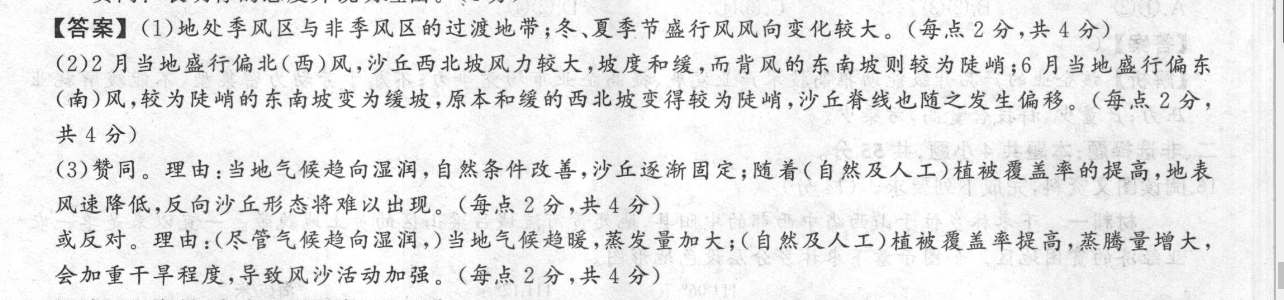 【答案】(1)地处季风区与非季风区的过渡地带;冬、夏季节盛行风风向变化较大。(每点 2 分,共 4 分)
(2)2 月当地盛行偏北(西)风,沙丘西北坡风力较大,坡度和缓,而背风的东南坡则较为陡峭;6 月当地盛行偏东
(南)风,较为陡峭的东南坡变为缓坡,原本和缓的西北坡变得较为陡峭,沙丘脊线也随之发生偏移。(每点 2 分,
共 4 分)
(3)赞同。理由:当地气候趋向湿润,自然条件改善,沙丘逐渐固定;随着(自然及人工)植被覆盖率的提高,地表
风速降低,反向沙丘形态将难以出现。(每点 2 分,共 4 分)
或反对。理由:(尽管气候趋向湿润,)当地气候趋暖,蒸发量加大;(自然及人工)植被覆盖率提高,蒸腾量增大,
会加重干旱程度,导致风沙活动加强。(每点 2 分,共 4 分)